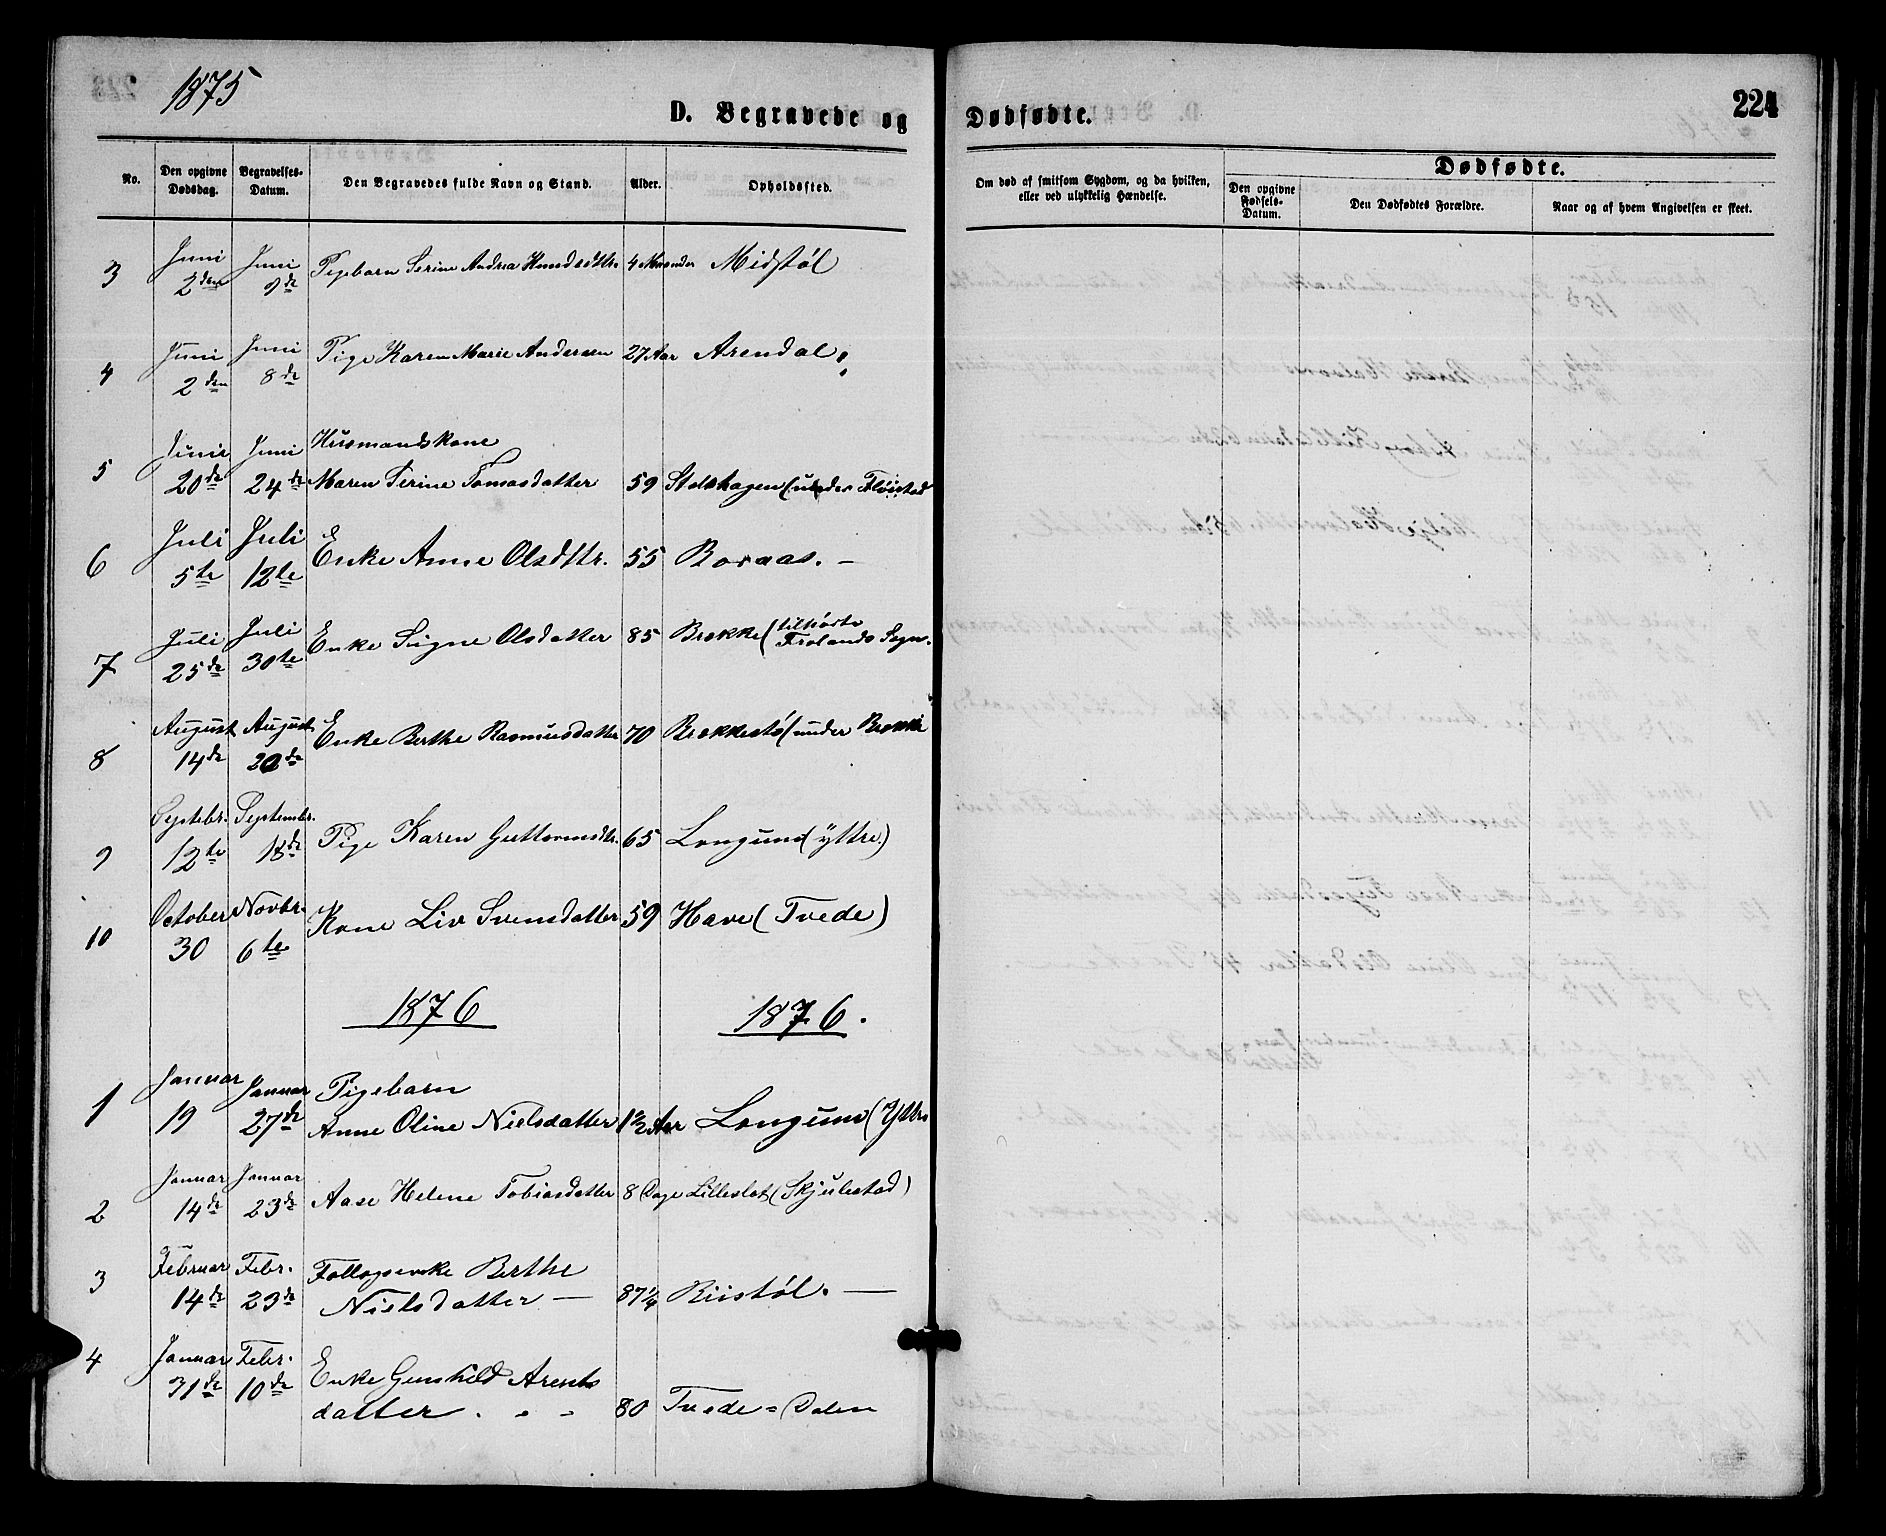 1875
D. Begravede og Dødfødte.
224
No.
Den opgivne Dødsdag.
Begravelses-Datum.
Den Begravedes fulde Navn og Stand.
Alder.
Opholdssted.
Om død af smitsom Sygdom, og da hvilken, eller ved ulykkelig Hændelse.
Dødfødte.
Den opgivne Fødsels-Datum.
Den Dødfødtes Forældre.
Naar og af hvem Angivelsen er skeet.
3 Juni 2den Juni 9de Pigebarn Serine Andrea Knudsdttr. 4 Maander Midstøl
4 Juni 2den Juni 8de Pige Karen Marie Andersen 27 Aar Arendal
5 Juni 20de Juni 24de Husmandskone
Maren Serine Tomasdatter 59 Stølshagen (under Fløistad
6 Juli 5te Juli 12te Enke Anne Olsdttr. 55 Boraas. —
7 Juli 25de Juli 30te Enke Signe Olsdatter 85 Brekke (tilhørte Frolands Sogn.
8 August 14de August 20de Enke Berthe Rasmusdatter 70 Brekkestø (under Brekke
9 Septebr. 12te Septembr. 18de Pige Karen Guttormsdtr. 65 Longum (yttre)
10 October 30 Novbr. 6te Kone Liv Svensdatter 59 Have (Tvede)
1876 1876.
1 Januar 19 Januar 27de Pigebarn
Anne Oline Nielsdatter 1½ Aar Longum (Yttre
2 Januar 14de Januar 23de Aase Helene Tobiasdatter 8 Dage Lilleslot (Skjulestad)
3 Februar 14de Febr. 23de Follogsenke Berthe
Nielsdatter — 87¼ Biistøl. —
4 Januar 31de Febr. 10de Enke Gunhild Arents
datter. 80 Tvede = Dalen